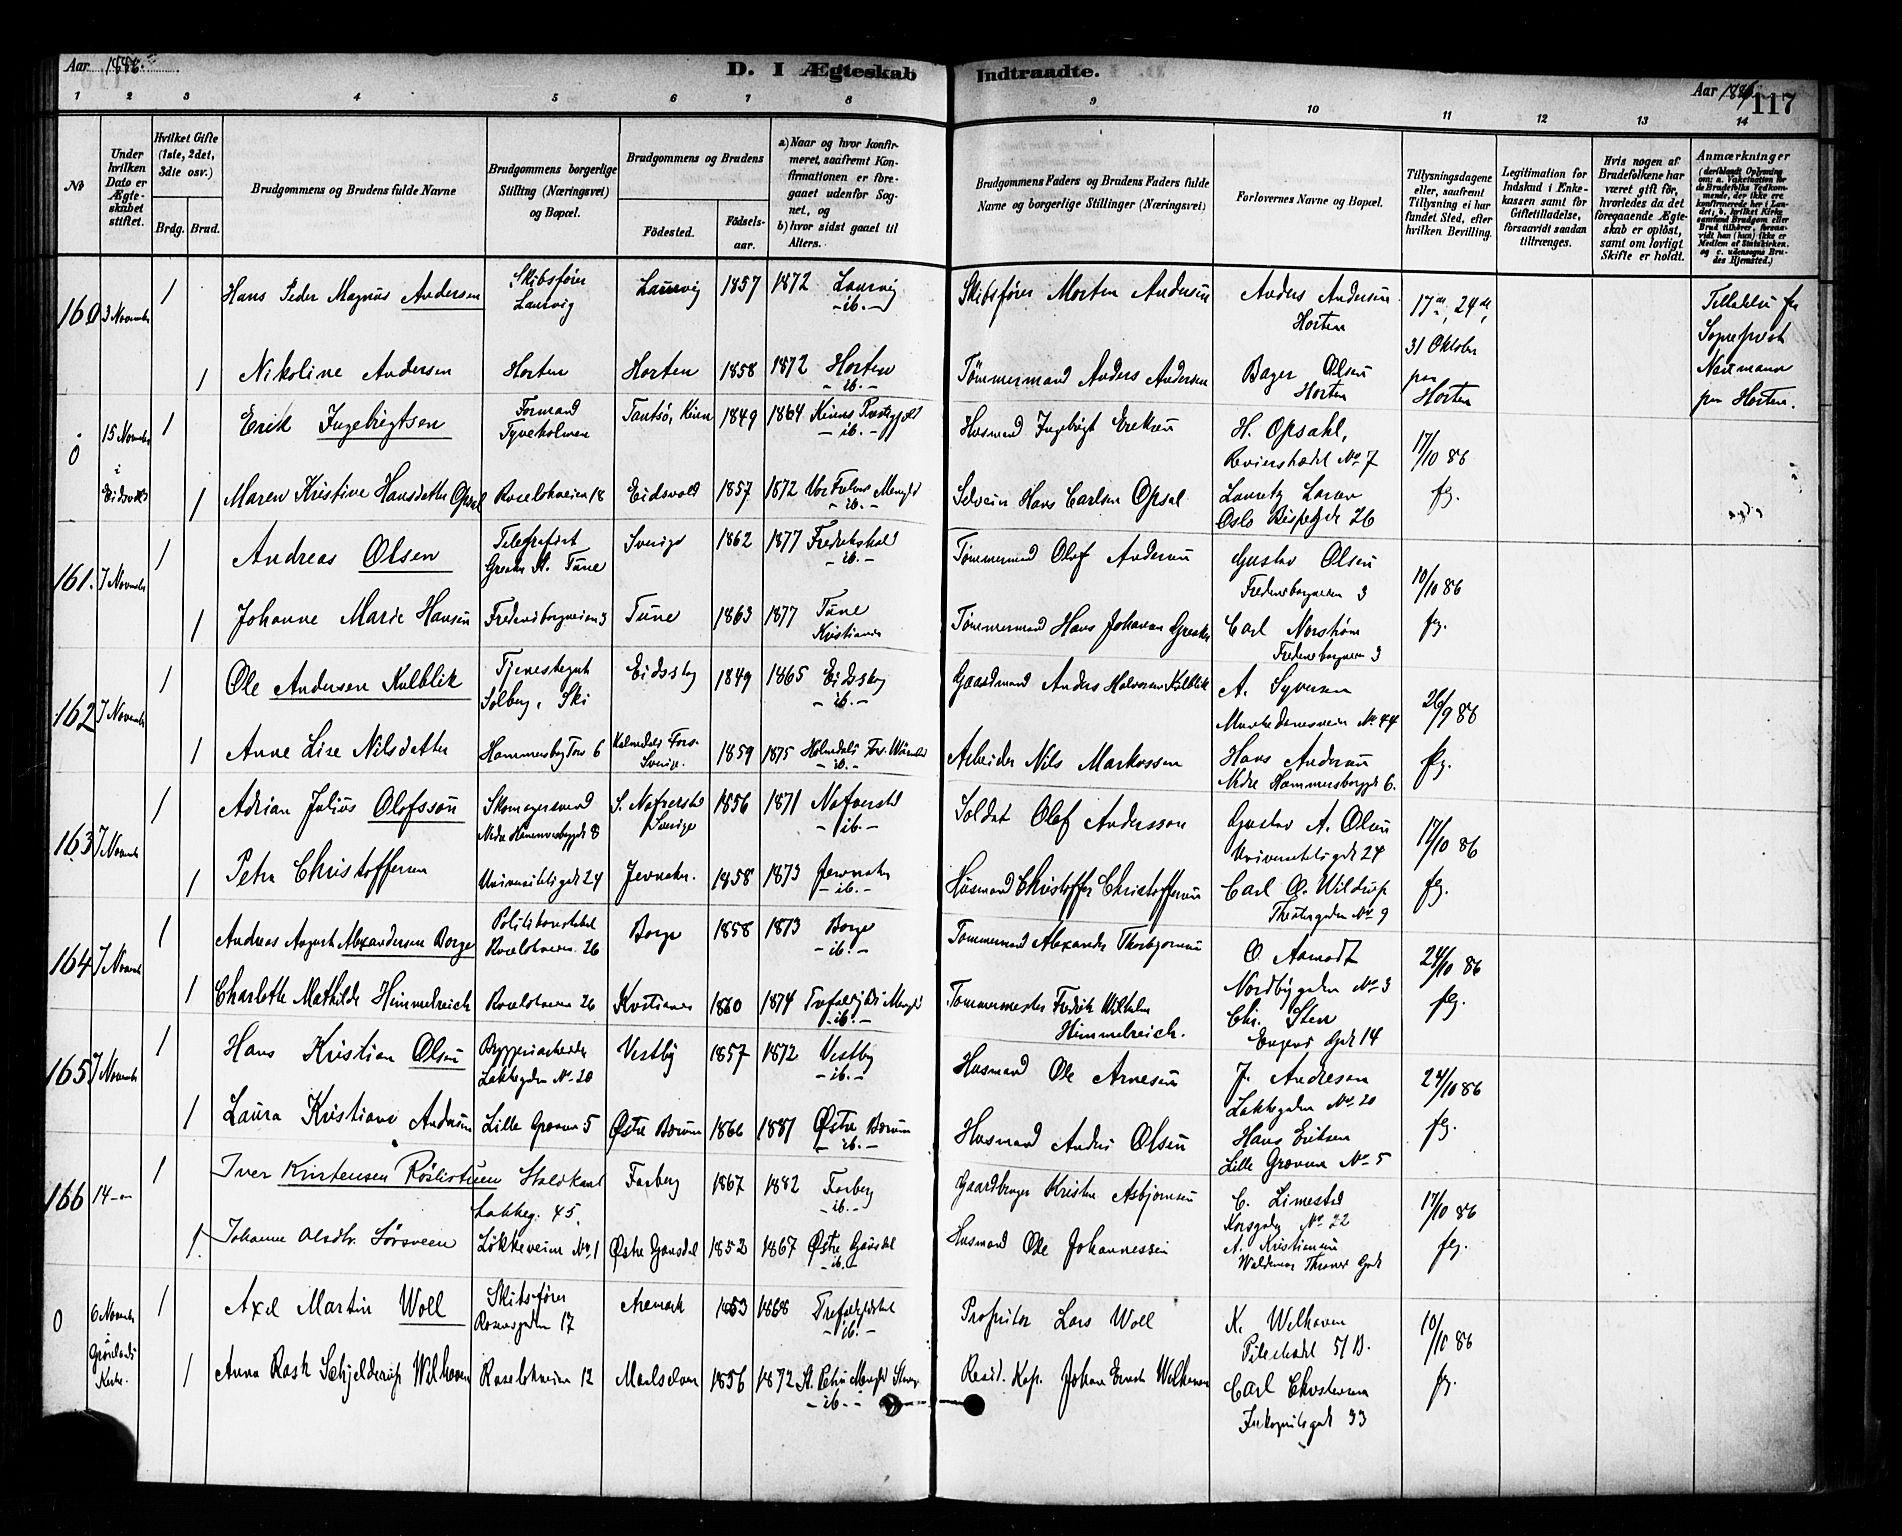 Aar 1886.
D. I Ægteskab Indtraadte.
Aar 1886.
117
1 2 3 4 5 6 7 8 9 10 11 12 13 14
No
Under hvilken Dato er Ægteskabet stiftet.
Hvilket Gifte (1ste, 2det, 3die osv.)
Brdg. Brud.
Brudgommens og Brudens fulde Navne
Brudgommens borgerlige Stilling (Næringsvei) og Bopæl.
Brudgommens og Brudens
Födested. Födselsaar.
a) Naar og hvor konfirmeret, saafremt Konfirmationen er foregaaet udenfor Sognet, og
b) hvor sidst gaaet til Alters.
Brudgommens Faders og Brudens Faders fulde Navne og borgerlige Stillinger (Næringsvei)
Forlovernes Navne og Bopæl.
Tillysningsdagene eller, saafremt Tillysning ei har fundet Sted, efter hvilken Bevilling.
Legitimation for Indskud i Enkekassen samt for Giftetilladelse, forsaavidt saadan tiltrænges.
Hvis nogen af Brudefolkene har været gift før, hvorledes da det foregaaende Ægteskab er oplöst, samt om lovligt Skifte er holdt.
Anmærkninger
160 3 November 1 Hans Peder Magnus Andersen Skibsfører Laurvig Laurvig 1857 1872 Laurvig -ib.- Skibsfører Morten Andersen Anders Andersen Horten 17de, 24de, 31 Oktober
1 Nikoline Andersen Horten Horten 1858 1872 Horten -ib.- Tømmermand Anders Andersen Bager Olsen Horten paa Horten
0 15 Novembr i Eidsvold 1 Erik Ingebrigtsen Formand Tyveholmen 1849 1864 -ib.- Husmand Ingebrigt Eriksen H. Opsahl, No 7 17/10 86
1 Maren Kristine Hansdatter Opsal 18 Eidsvold 1857 1872 Vor Frelsers Menighd -ib.- Hans Carlsen Opsal Lauritz Larsen Oslo Bispegde 26 fg.
161. 7 November 1 Andreas Olsen Telegrafist Greaker St. Tune Sverige 1862 1877 Fredrikshald -ib.- Tømmermand Olof Andersen Gustav Olsen Fredensborgveien 3 10/10 86
1 Johanne Marie Hansen Fredensborgveien 3 Tune 1863 1877 Tune Kristiania Tømmermand Hans Johansen Greaker Carl Norstrøm Fredensborgveien 3 fg.
162 7 November 1 Ole Andersen Kalblik Tjenestegut Solberg, Ski Eidsskog 1849 1865 Eidsskog -ib.- Gaardmand Anders Halvorsen Kalblik A. Syversen No 44 26/9 86
1 Anne Lise Nilsdatter Hammersborg Torv 6 Sverige 1859 1875 -ib.- Arbeider Nils Markussen Hans Andersen Nedre Hammersborggd 6. fg.
163 7 Novemb 1 Adrian Julius Olofsson Skomagersvend Nedre Hammersborggd 8 Sverige 1856 1871 -ib.- Soldat Olof Andersson Gustav A. Olsen Universitetsgd 24 17/10 86
1 Petra Christoffersen Universitetsgd 24 Jevnaker. 1858 1873 Jevnaker -ib.- Husmand Christoffer Christoffersen Carl O. Wildrup Theatergaden No 9 fg.
164 7 Novemb 1 Andreas August Alexandersen Borge Politikonstabel 26 Borge 1858 1873 Borge -ib.- Tømmermand Alexander Thorbjørnsen O. Aamodt Nordbygaden No 3 24/10 86
1 Charlotte Mathilde Himmelreich 26 Kristiania 1860 1874 Trefoldighds Menighd -ib.- Tømmermester Fredrik Wilhelm Himmelreich. Chr. Steen Engens Gade 14 fg.
165 7 Novemb 1 Hans Kristian Olsen Bryggeriarbeider Lakkegaden No 20 Vestby 1857 1872 Vestby -ib.- Husmand Ole Arnesen J. Andresen Lakkegaden No 20 24/10 86
1 Laura Kristiane Andersen Lille Grænsen 5 Østre Bærum 1866 1881 Østre Bærum -ib.- Husmand Anders Olsen Hans Eriksen Lille Grænsen No 5 fg.
166 14 1 Iver Kristensen Røslistuen Staldkarl Lakkeg. 45. Faaberg 1867 1882 Faaberg -ib.- Gaardbruger Kristen Asbjørnsen C. Limestad Korsgaden No 22 17/10 86
1. Johanne Olsdtr. Sørsveen Løkkeveien No 1 Østre Gausdal 1852 1867 Østre Gausdal -ib.- Husmand Ole Johannessen A. Kristiansen Waldemar Thranes Gade fg.
0 6 Novemb i Grønlands Kirke. 1 Axel Martin Woll Skibsfører 17 Aremark 1853 1868 -ib.- Proprietær Lars Woll K. Welhaven Pilestrædet 51 B. 10/10 86
1 Anna Rask Schjelderup Welhaven 12 Maalselven 1856 1872 St. Petri Menighd -ib.- Resid. Kap. Johan Ernst Welhaven Carl Christensen 33 fg.
Tilladelse fra Sogneprest Naumann paa Horten.